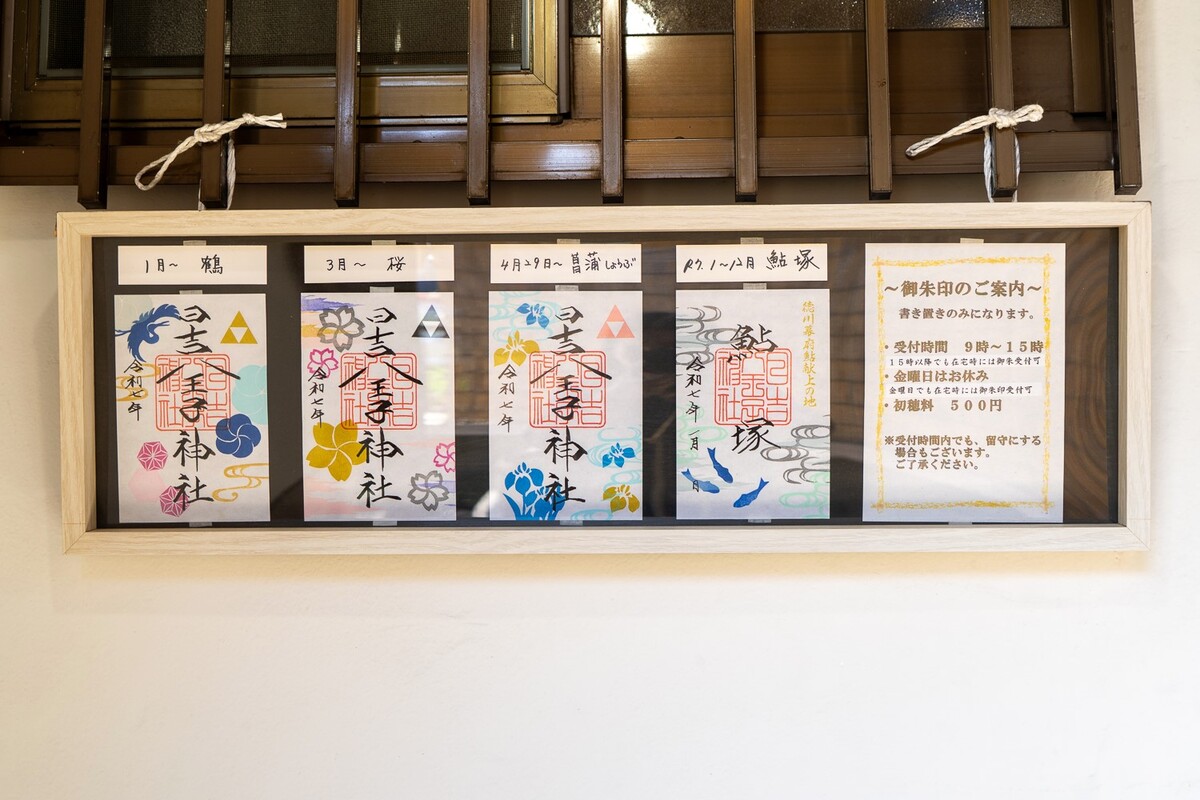 1月～ 鶴
日吉八王子神社
令和七年
3月～ 桜
日吉八王子神社
令和七年
4月29日～菖蒲しょうぶ
日吉八王子神社
令和七年
R7.1～12月 鮎塚
徳川幕府鮎献上の地
鮎塚
令和七年 一月 日
～御朱印のご案内～
書き置きのみになります。
・受付時間 9時～15時
15時以降でも在宅時には御朱受付可
・金曜日はお休み
金曜日でも在宅時には御朱印受付可
・初穂料 500円
※受付時間内でも、留守にする
場合もございます。
ご了承ください。